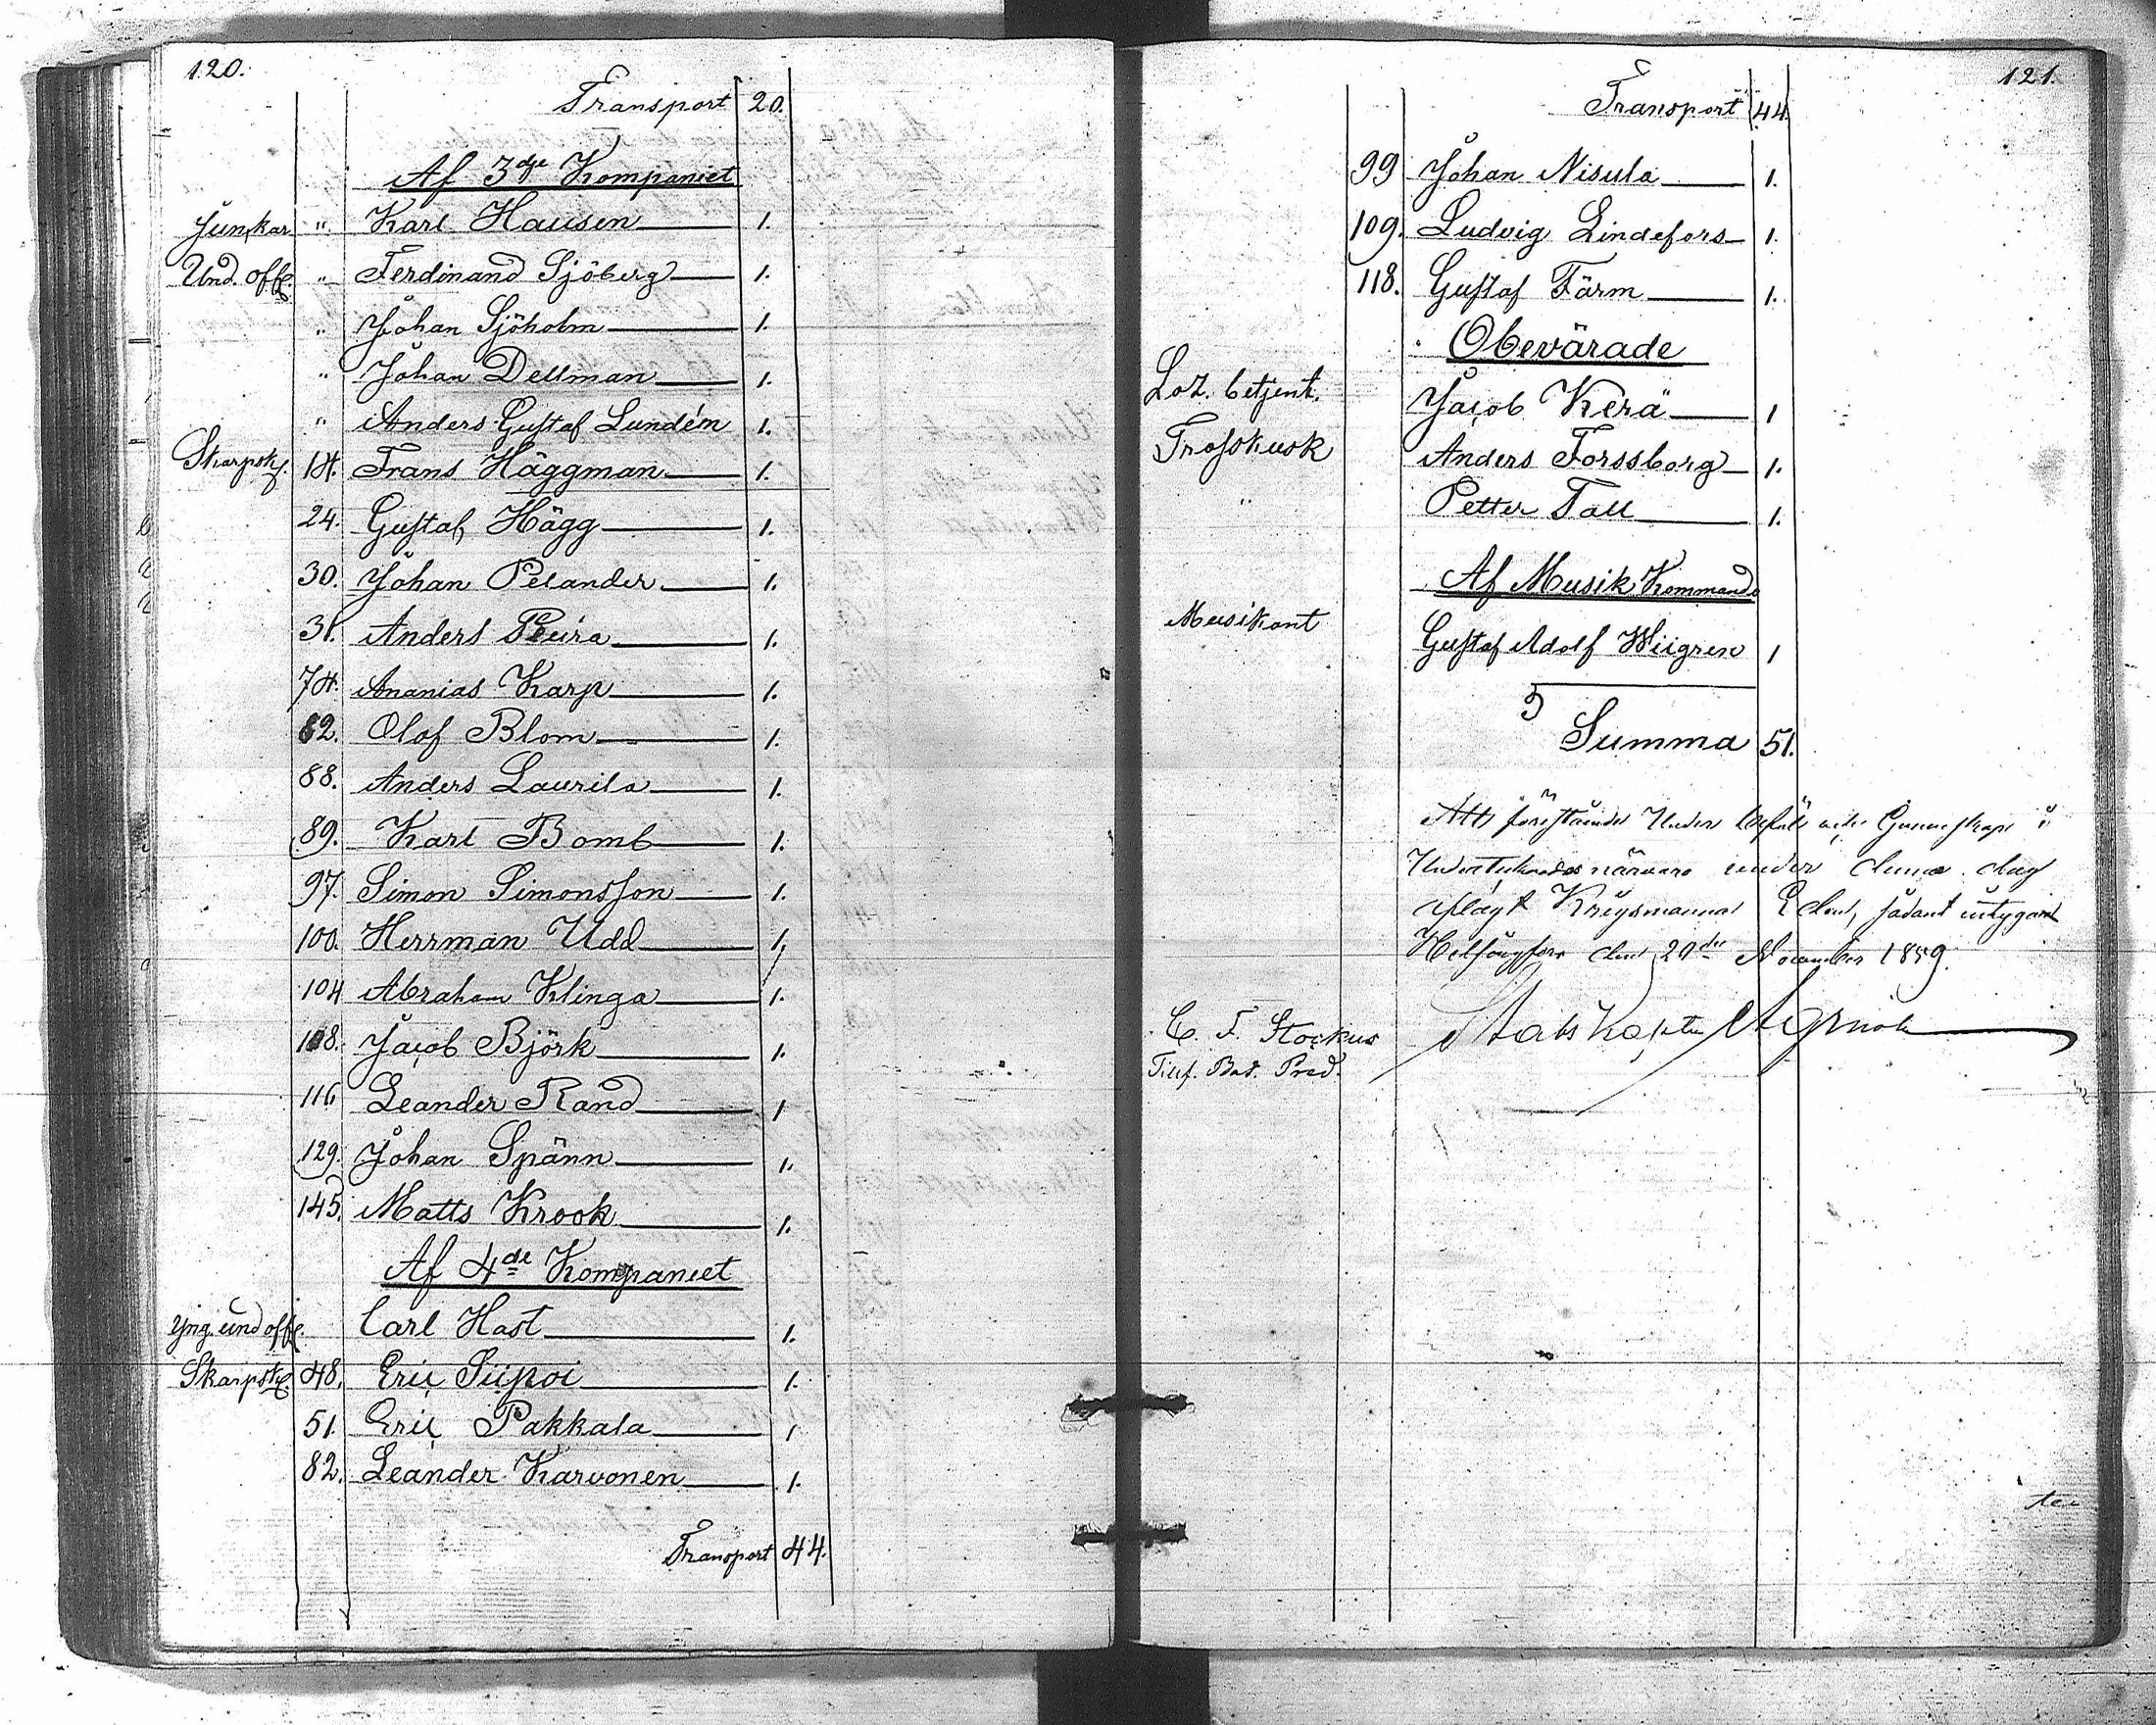 120.
Transport 20.
Af 3dje Kompaniet
Junkar " Karl Hausen 1.
Und. off. " Ferdinand Sjöberg 1.
" Johan Sjöholm 1.
" Johan Dellman 1.
" Anders Gustaf Lundén 1.
Skarpsk. 14. Frans Häggman 1.
24. Gustaf Hägg 1.
30. Johan Pelander 1.
31. Anders Peura 1.
74. Ananias Karp 1.
82. Olof Blom 1.
88. Anders Laurila 1.
89. Karl Bomb 1.
97. Simon Simonsson 1.
100. Herrman Udd 1.
104 Abraham Klinga 1.
108. Jacob Björk 1.
116 Leander Rand 1
129. Johan Spänn 1.
145. Matts Krook 1.
Af 4de Kompaniet
Yng. und off. Carl Hast 1.
Skarpsk. 48. Eric Siipoi 1.
51. Eric Pakkala 1
82. Leander Karvonen 1.
Transport 44.
121.
Transport 44
99 Johan Nisula 1.
109. Ludvig Lindefors 1.
118. Gustaf Färm 1.
Obevärade
Laz. betjent. Jacob Kerä 1
Trosskusk Anders Forssborg 1.
" Petter Tall 1.
Af Musik Kommando
Musikant Gustaf Adolf Wiigren 1
Summa 51.
Att förestående Under befäl och Gemenskap i
Undertecknades närvaro under denna dag
aflagt Krigsmanna Eden, sådant intygar
Helsingfors den 20de November 1859.
C. F. Stockus Stabskapten
Tillf. Bat. Pred.